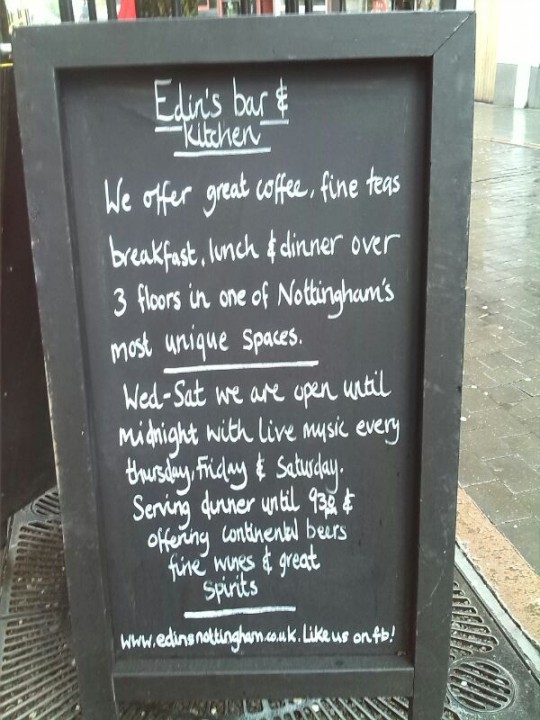 Edin's bar &
kitchen
We offer great coffee, fine teas
breakfast, lunch & dinner over
3 floors in one of Nottingham's
most unique spaces.
Wed-Sat we are open until
midnight with live music every
thursday, Friday & Saturday.
Serving dinner until 930 &
offering continental beers
fine wines & great
Spirits
www.edinsnottingham.co.uk. Like us on fb!